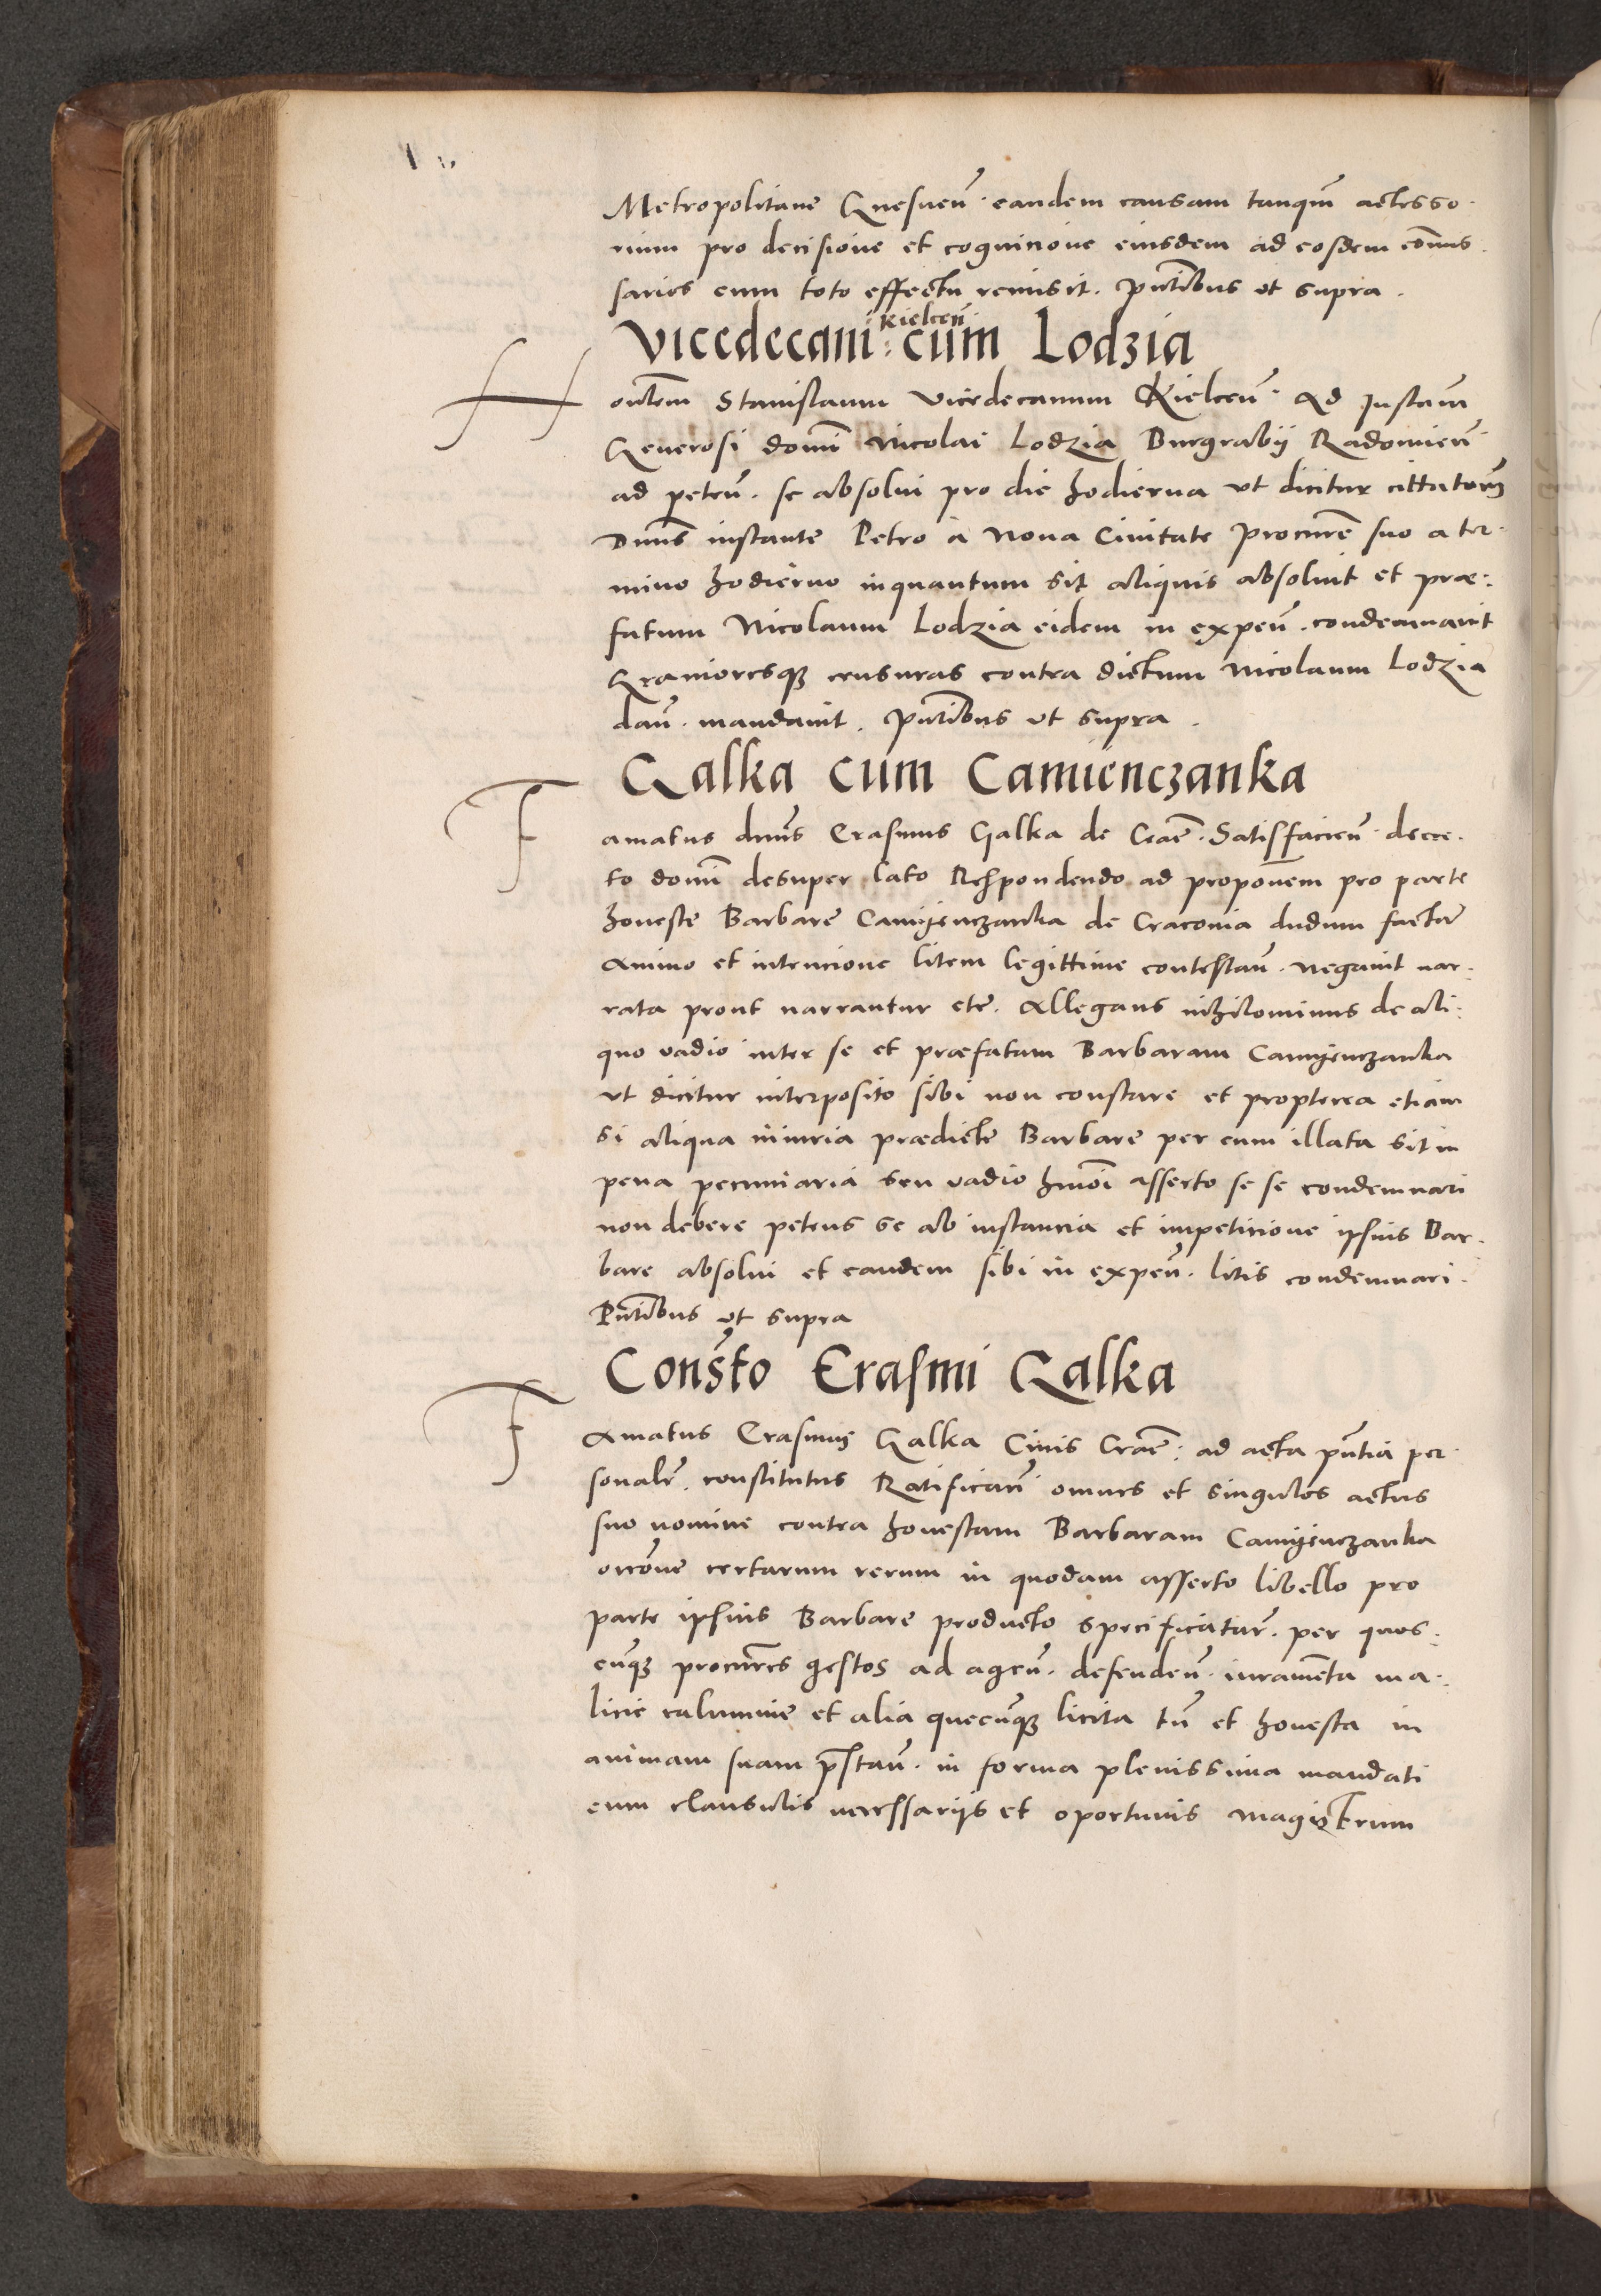 Metropolitane Gnesneñ. eandem causam tanqm̃ accesso-
rium pro decisione et cognicione eiusdem ad eosdem com̃is-
sarios cum toto effectu remisit. Pñtibus vt supra.
Vicedecani Kielceñ cum Lodzia
Honlem̃ Stanislaum Vicedecanum Kielceñ. Ad Instam̃
Generosi domĩ Nicolai Lodzia Burgrabij Radomieñ.
ad peteñ. se absolui pro die hodierna vt dicitur cittatum
Dnũs instante Petro à Noua Ciuitate Procurẽ suo a ter-
mino hodierno inquantum sit aliquis absoluit et præ-
fatum Nicolaum Lodzia eidem in expeñ. condemnauit
Grauioresq3 censuras contra dictum Nicolaum Lodzia
dañ. mandauit. Pñtibus vt supra.
Galka cum Camienczanka
Famatus dnũs Erasmus Galka de Craẽ. Satisfacieñ. decre-
to domĩ desuper lato Respondendo ad proponem̃ pro parte
honeste Barbare Camijenczanka de Cracouia dudum factã
Animo et intencione litem legittime contestañ. negauit nar-
rata prout narrantur etc̃. Allegans nihilominus de ali-
quo vadio inter se et præfatam Barbaram Camijenczanka
vt dicitur interposito sibi non constare et propterea etiam
si aliqua iniuria prædicte Barbare per eum illata sit in
pena pecuniaria seu vadio hmõi asserto se se condemnari
non debere petens se ab instancia et impeticione ipsius Bar-
bare absolui et eandem sibi in expeñ. litis condemnari.
Pñtibus vt supra
Cons̃to Erasmi Galka
Famatus Erasmus Galka Ciuis Craẽ: ad acta pñtia per-
sonalr̃. constitutus Ratificañ omnes et singulos actus
suo nomine contra honestam Barbaram Camijenczanka
occõne certarum rerum in quodam asserto libello pro
parte ipsius Barbare producto specificatar̃. per quos-
cunq3 procurẽs gestos ad ageñ. defendeñ. iuramẽta ma-
licie calumnie et alia quecunq3 licita tñ et honesta in
animam suam p̃stañ. in forma plenissima mandati
cum clausulis necessarijs et oportunis Magistrum